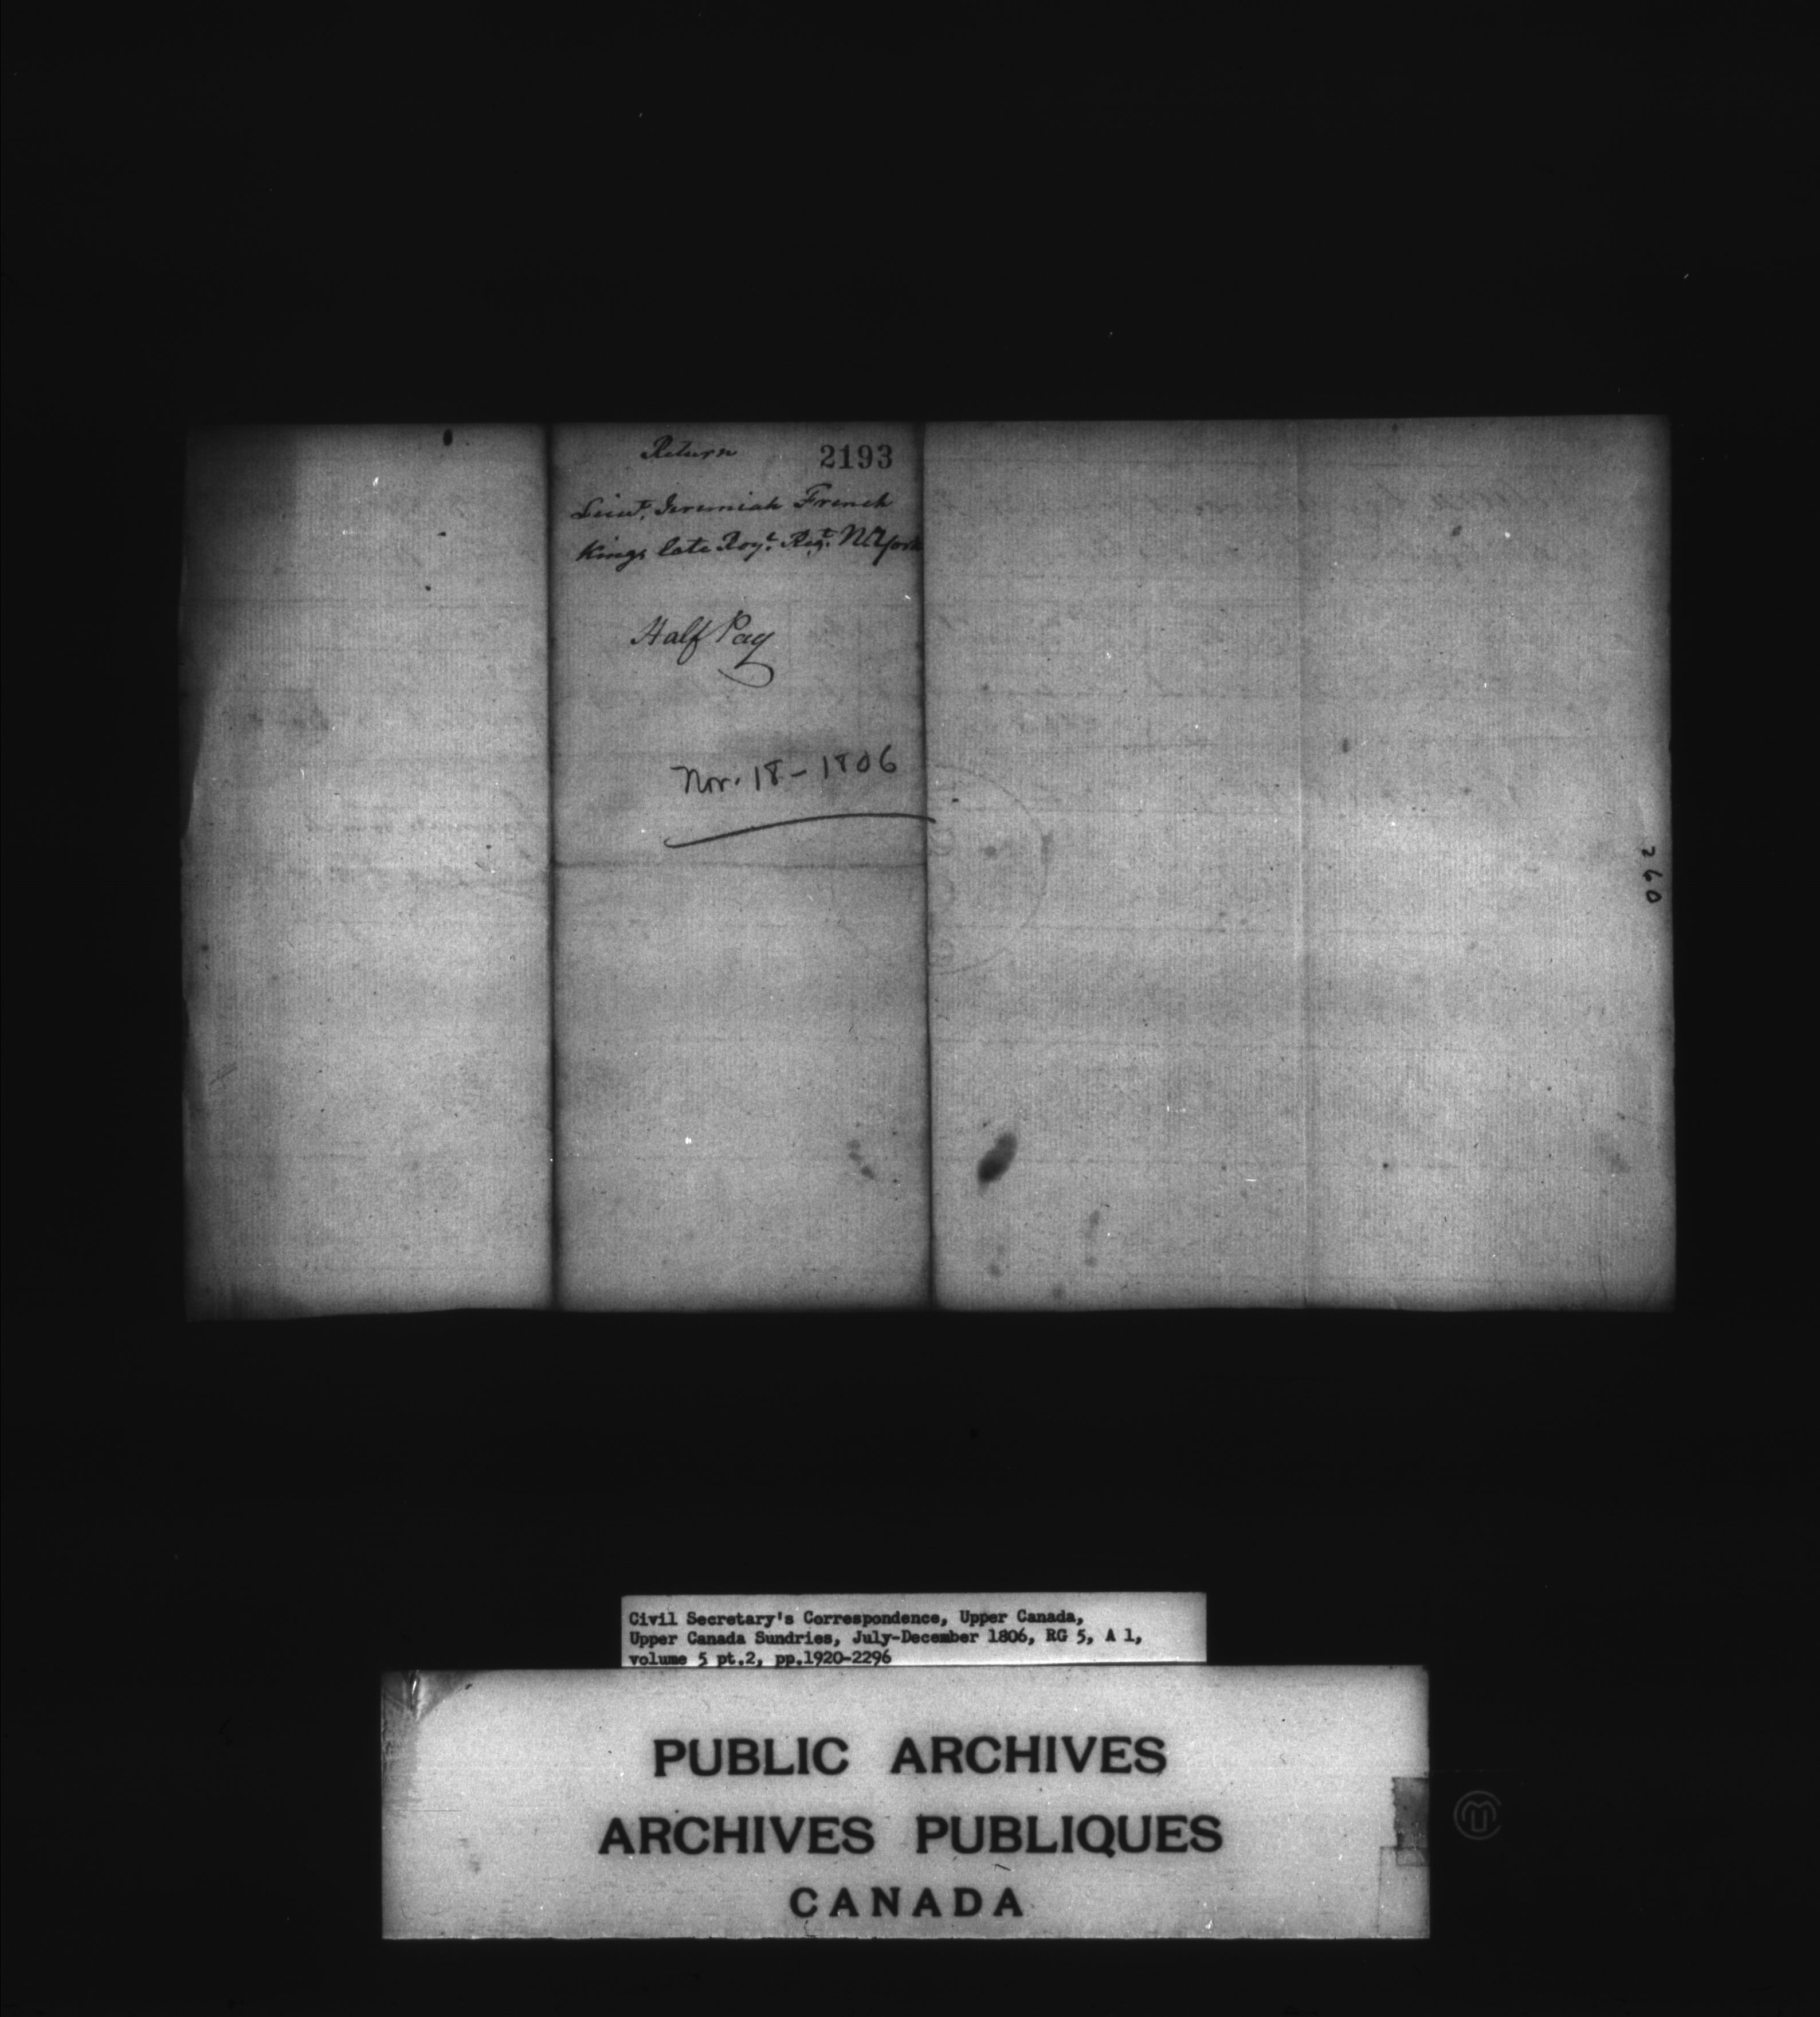 Return
2193
Lieut. Jeremiah French
Kings late Royl. Regt. N. York
Half Pay
Nov. 18 - 1806
260
Civil Secretary's Correspondence, Upper Canada,
Upper Canada Sundries, July-December 1806, RG 5, A 1,
volume 5 pt.2, pp.1920-2296
PUBLIC ARCHIVES
ARCHIVES PUBLIQUES
CANADA